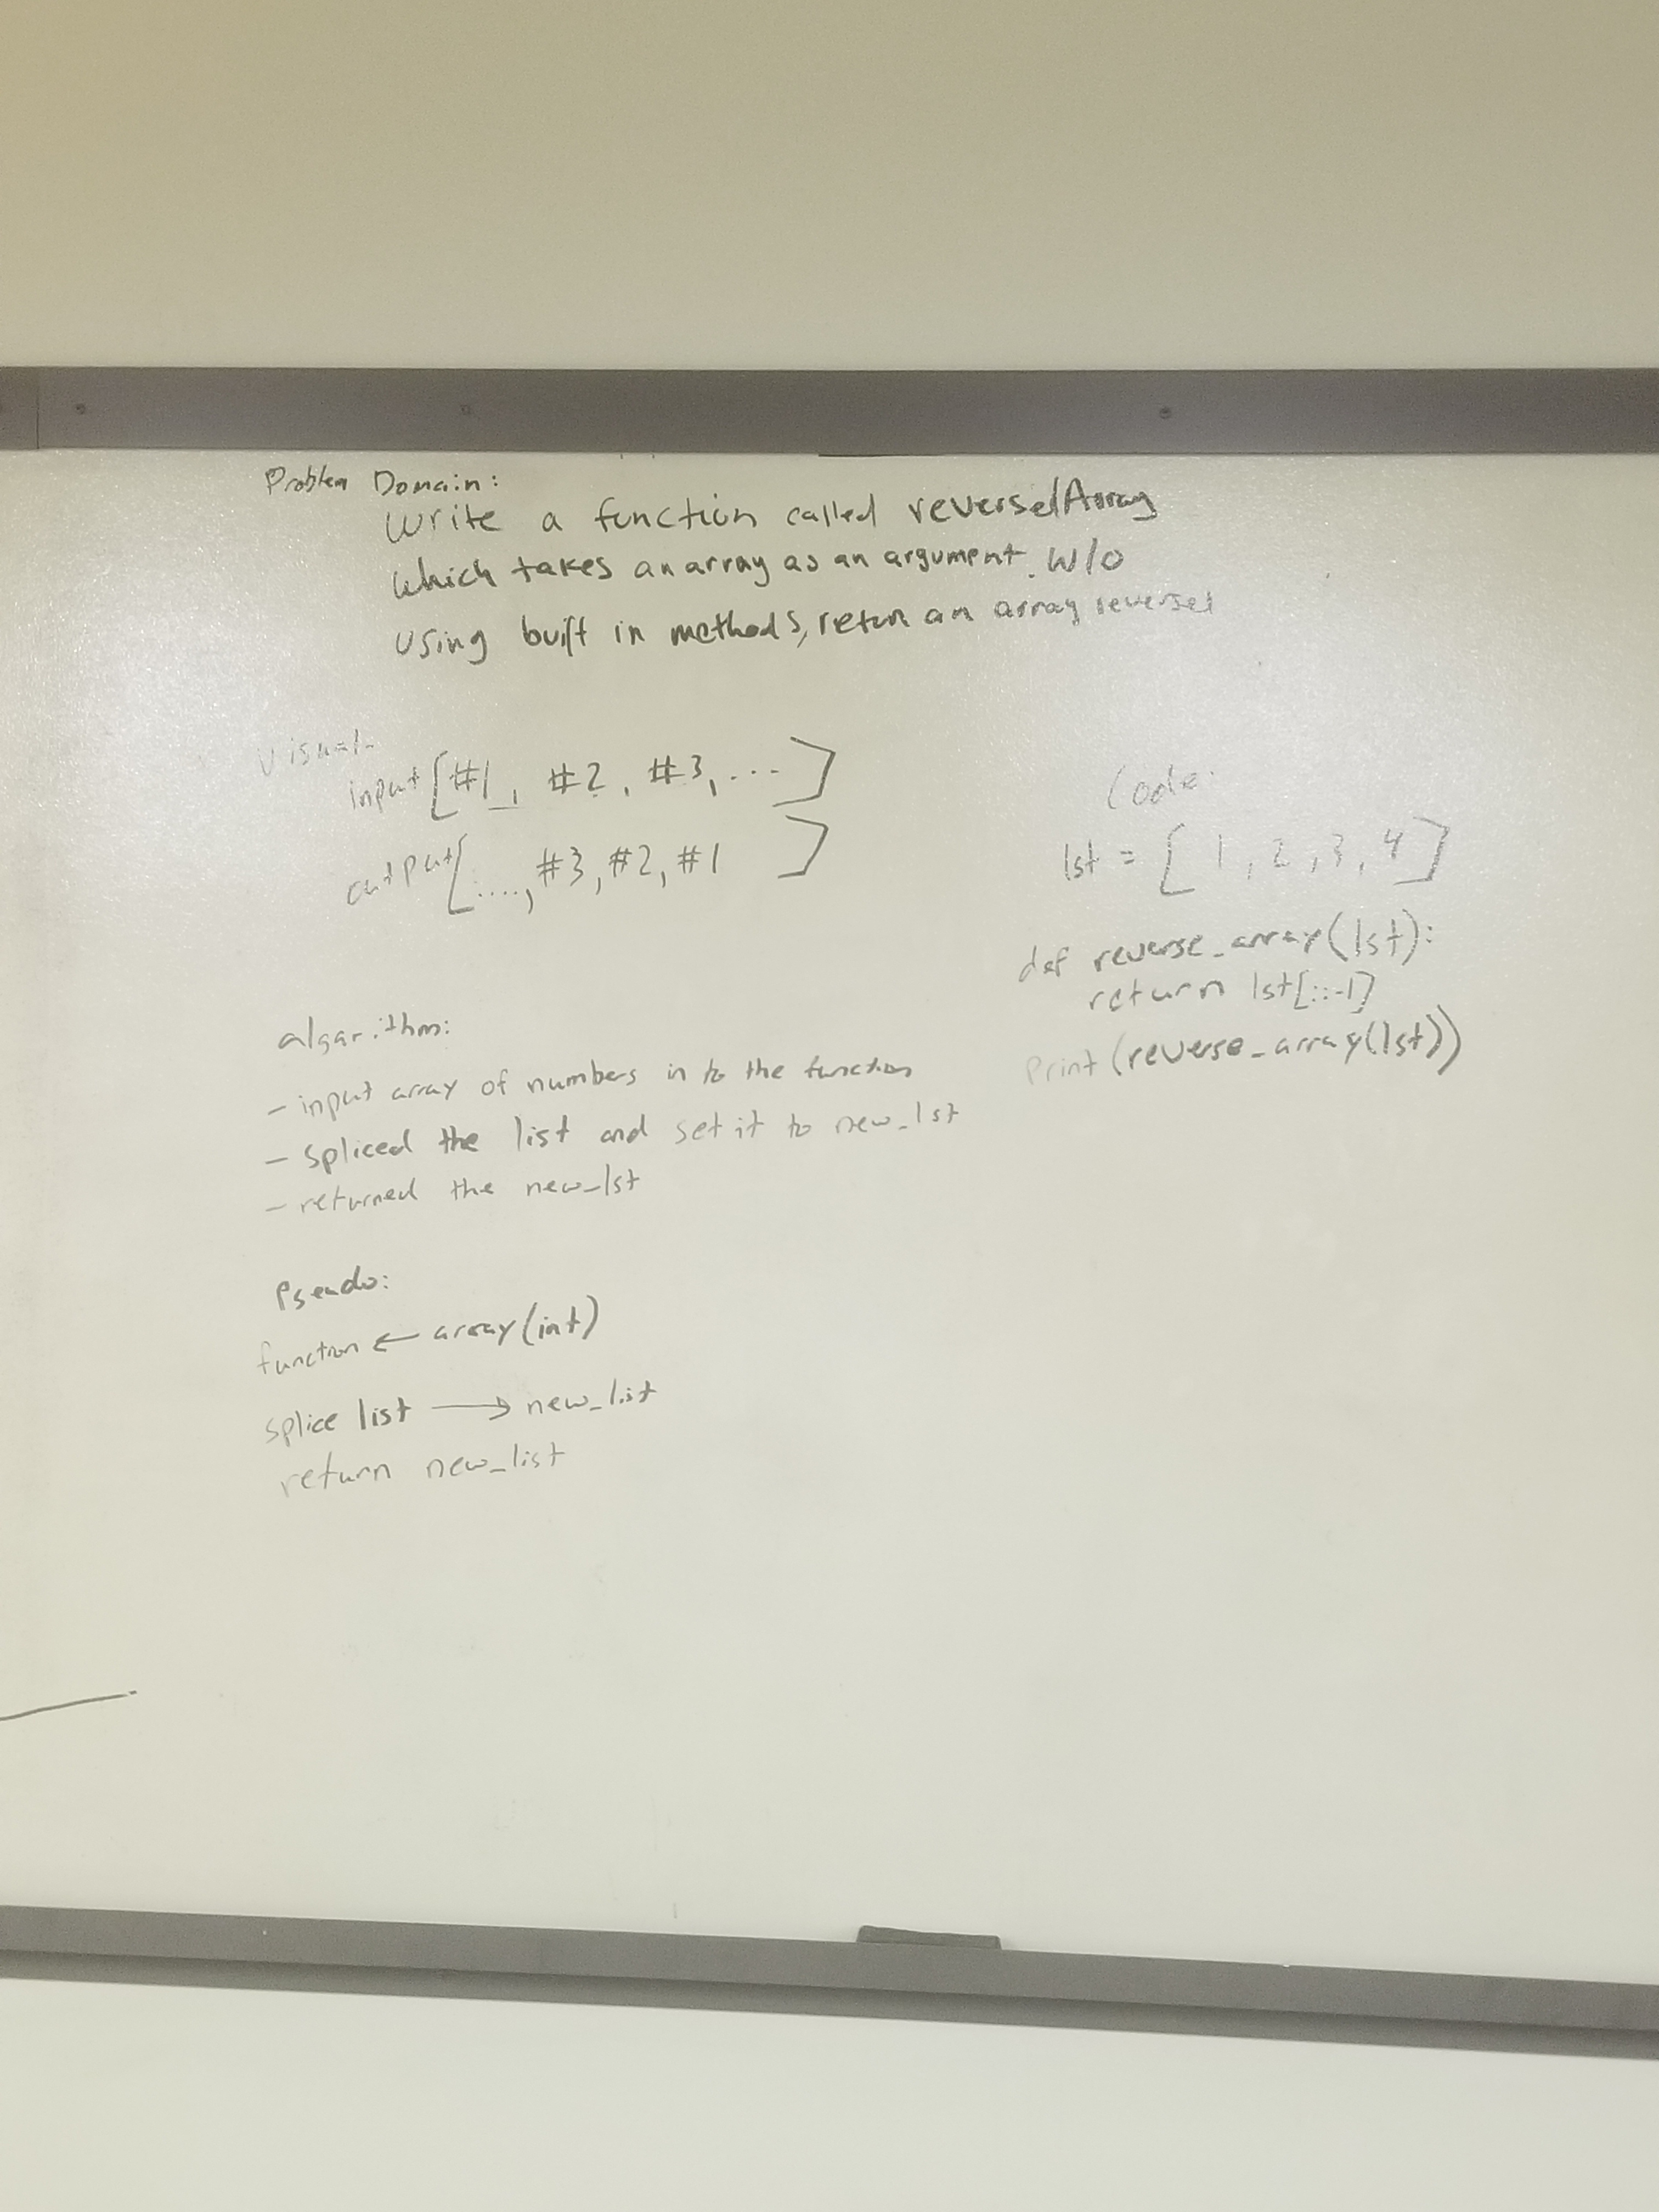 Problem Domain:
Write a function called reverseArray
which takes an array as an argument. W/O
using built in methods, return an array reversed
Visual
input [#1, #2, #3, ... ]
output [ ...., #3, #2, #1 ]
algorithm:
- input array of numbers in to the function
- spliced the list and set it to new_lst
- returned the new_lst
Pseudo:
function ← array(int)
splice list → new_list
return new_list
Code:
lst = [ 1, 2, 3, 4 ]
def reverse_array(lst):
return lst[::-1]
Print(reverse_array(lst))